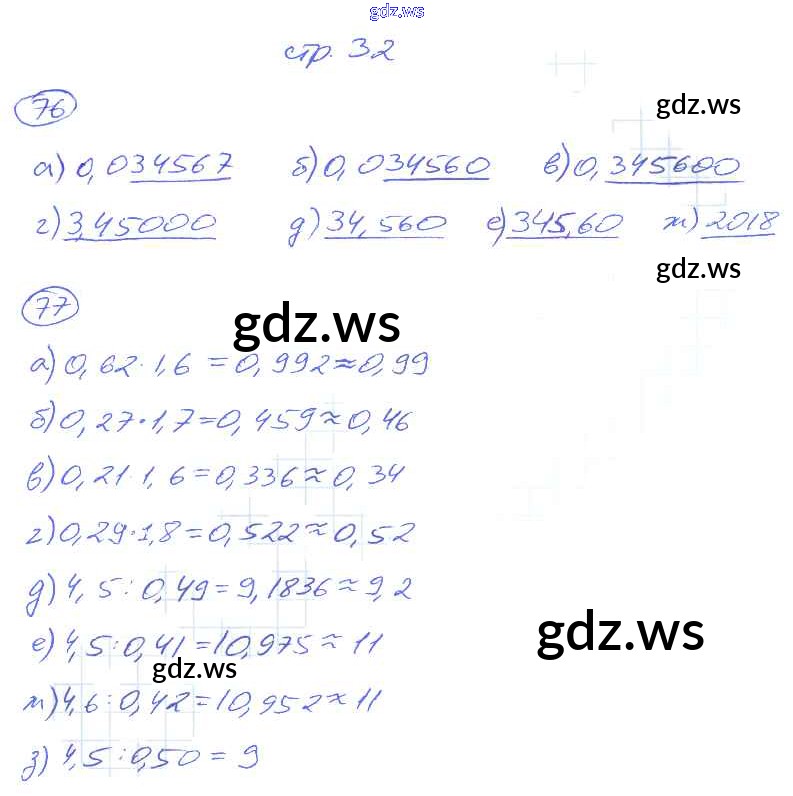 gdz.ws
стр. 32
76
gdz.ws
а) 0,034567 б) 0,034560 в) 0,345600
г) 3,45000 д) 34,560 е) 345,60 ж) 2018
gdz.ws
77
gdz.ws
а) 0,62·1,6 = 0,992 ≈ 0,99
б) 0,27·1,7 = 0,459 ≈ 0,46
в) 0,21·1,6 = 0,336 ≈ 0,34
г) 0,29·1,8 = 0,522 ≈ 0,52
д) 4,5 : 0,49 = 9,1836 ≈ 9,2
gdz.ws
е) 4,5 : 0,41 = 10,975 ≈ 11
gdz.ws
ж) 4,6 : 0,42 = 10,952 ≈ 11
з) 4,5 : 0,50 = 9